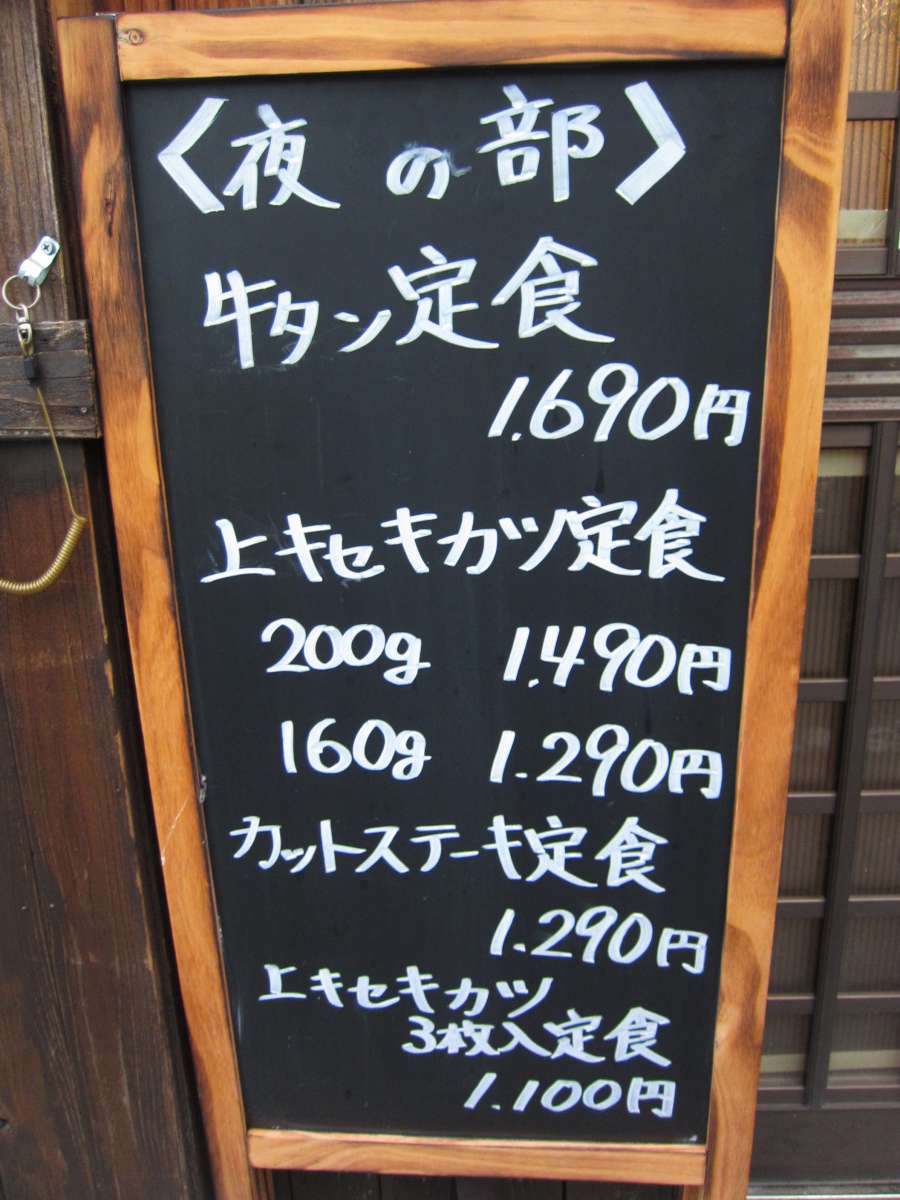 〈夜の部〉
牛タン定食
1.690円
上キセキカツ定食
200g 1.490円
160g 1.290円
カットステーキ定食
1.290円
上キセキカツ
3枚入定食
1.100円